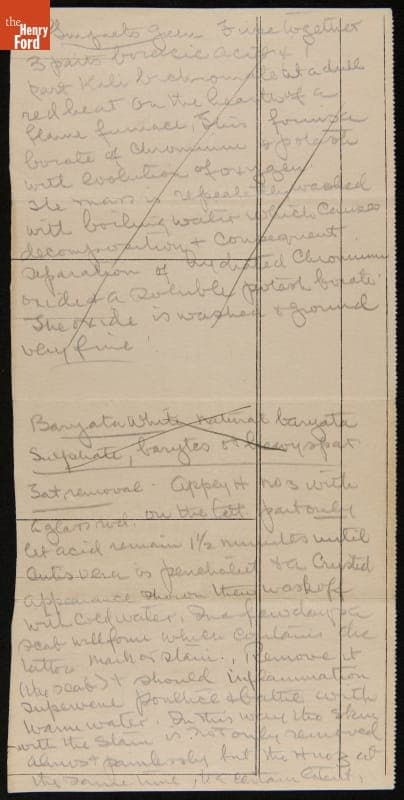 the Henry Ford
Guignets green Fuse together
3 parts boracic acid & 1
part Kali bichromate at a dull
red heat on the hearth of a
flame furnace, This forms a
borate of chromium & potash
with evolution of oxygen
The mass is repeatedly washed
with boiling water which causes
decomposition & consequent
separation of hydrated chromium
oxide & a soluble potash borate.
The oxide is washed & ground
very fine
Baryata White natural baryata
Sulphate, barytes or heavy spar.
Tat, removal - apply H no3 with
a glass rod. on the tatt part only
let acid remain 1½ minutes until
Cutis vera is penetrated & a Crusted
appearance shown then wash off
with cold water, In a few days a
scab will form which contains the
tattoo mark or stain, Remove it
(the scab) & should inflammation
supervene poultice & bathe with
warm water. In this way the skin
with the stain is not only removed
almost painlessly but the H no3 at
the same time, to a certain extent,